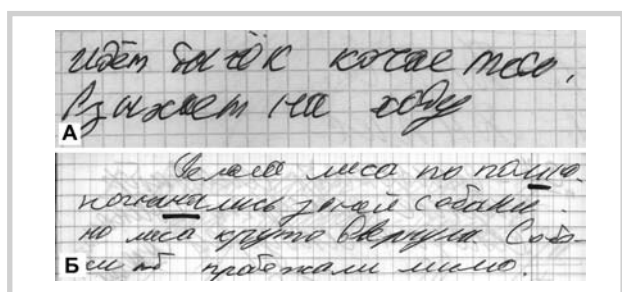 идёт бычок качается,
вздыхает на ходу
А
лиса по полю.
погнались за ней собаки.
но лиса круто свернула. Соба-
Б
пробежали мимо.